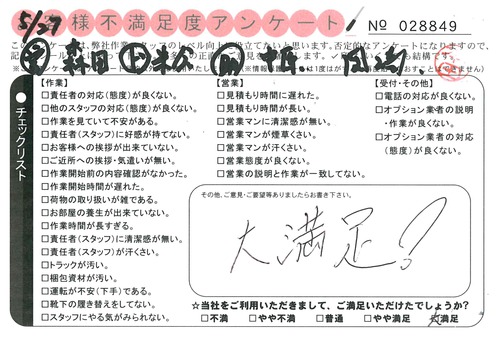 5/27
お客様不満足度アンケート
№ 028849
チェックリスト
【作業】
□責任者の対応(態度)が良くない。
□他のスタッフの対応(態度)が良くない。
□作業を見ていて不安がある。
□責任者(スタッフ)に好感が持てない。
□お客様への挨拶が出来ていない。
□ご近所への挨拶・気遣いが無い。
□作業開始前の内容確認がなかった。
□作業開始時間が遅れた。
□荷物の取り扱いが雑である。
□お部屋の養生が出来ていない。
□作業時間が長すぎる。
□責任者(スタッフ)に清潔感が無い。
□責任者(スタッフ)が汗くさい。
□トラックが汚い。
□梱包資材が汚い。
□運転が不安(下手)である。
□靴下の履き替えをしてない。
□スタッフにやる気がみられない。
【営業】
□見積もり時間に遅れた。
□見積もり時間が長い。
□営業マンに清潔感が無い。
□営業マンが煙草くさい。
□営業マンが汗くさい。
□営業態度が良くない。
□営業の説明と作業が一致してない。
【受付・その他】
□電話の対応が良くない。
□オプション業者の説明
・作業が良くない。
□オプション業者の対応
(態度)が良くない。
その他、ご意見・ご要望等ありましたらお書き下さい。
大満足!
☆当社をご利用いただきまして、ご満足いただけたでしょうか?
□不満 □やや不満 □普通 □やや満足 大満足